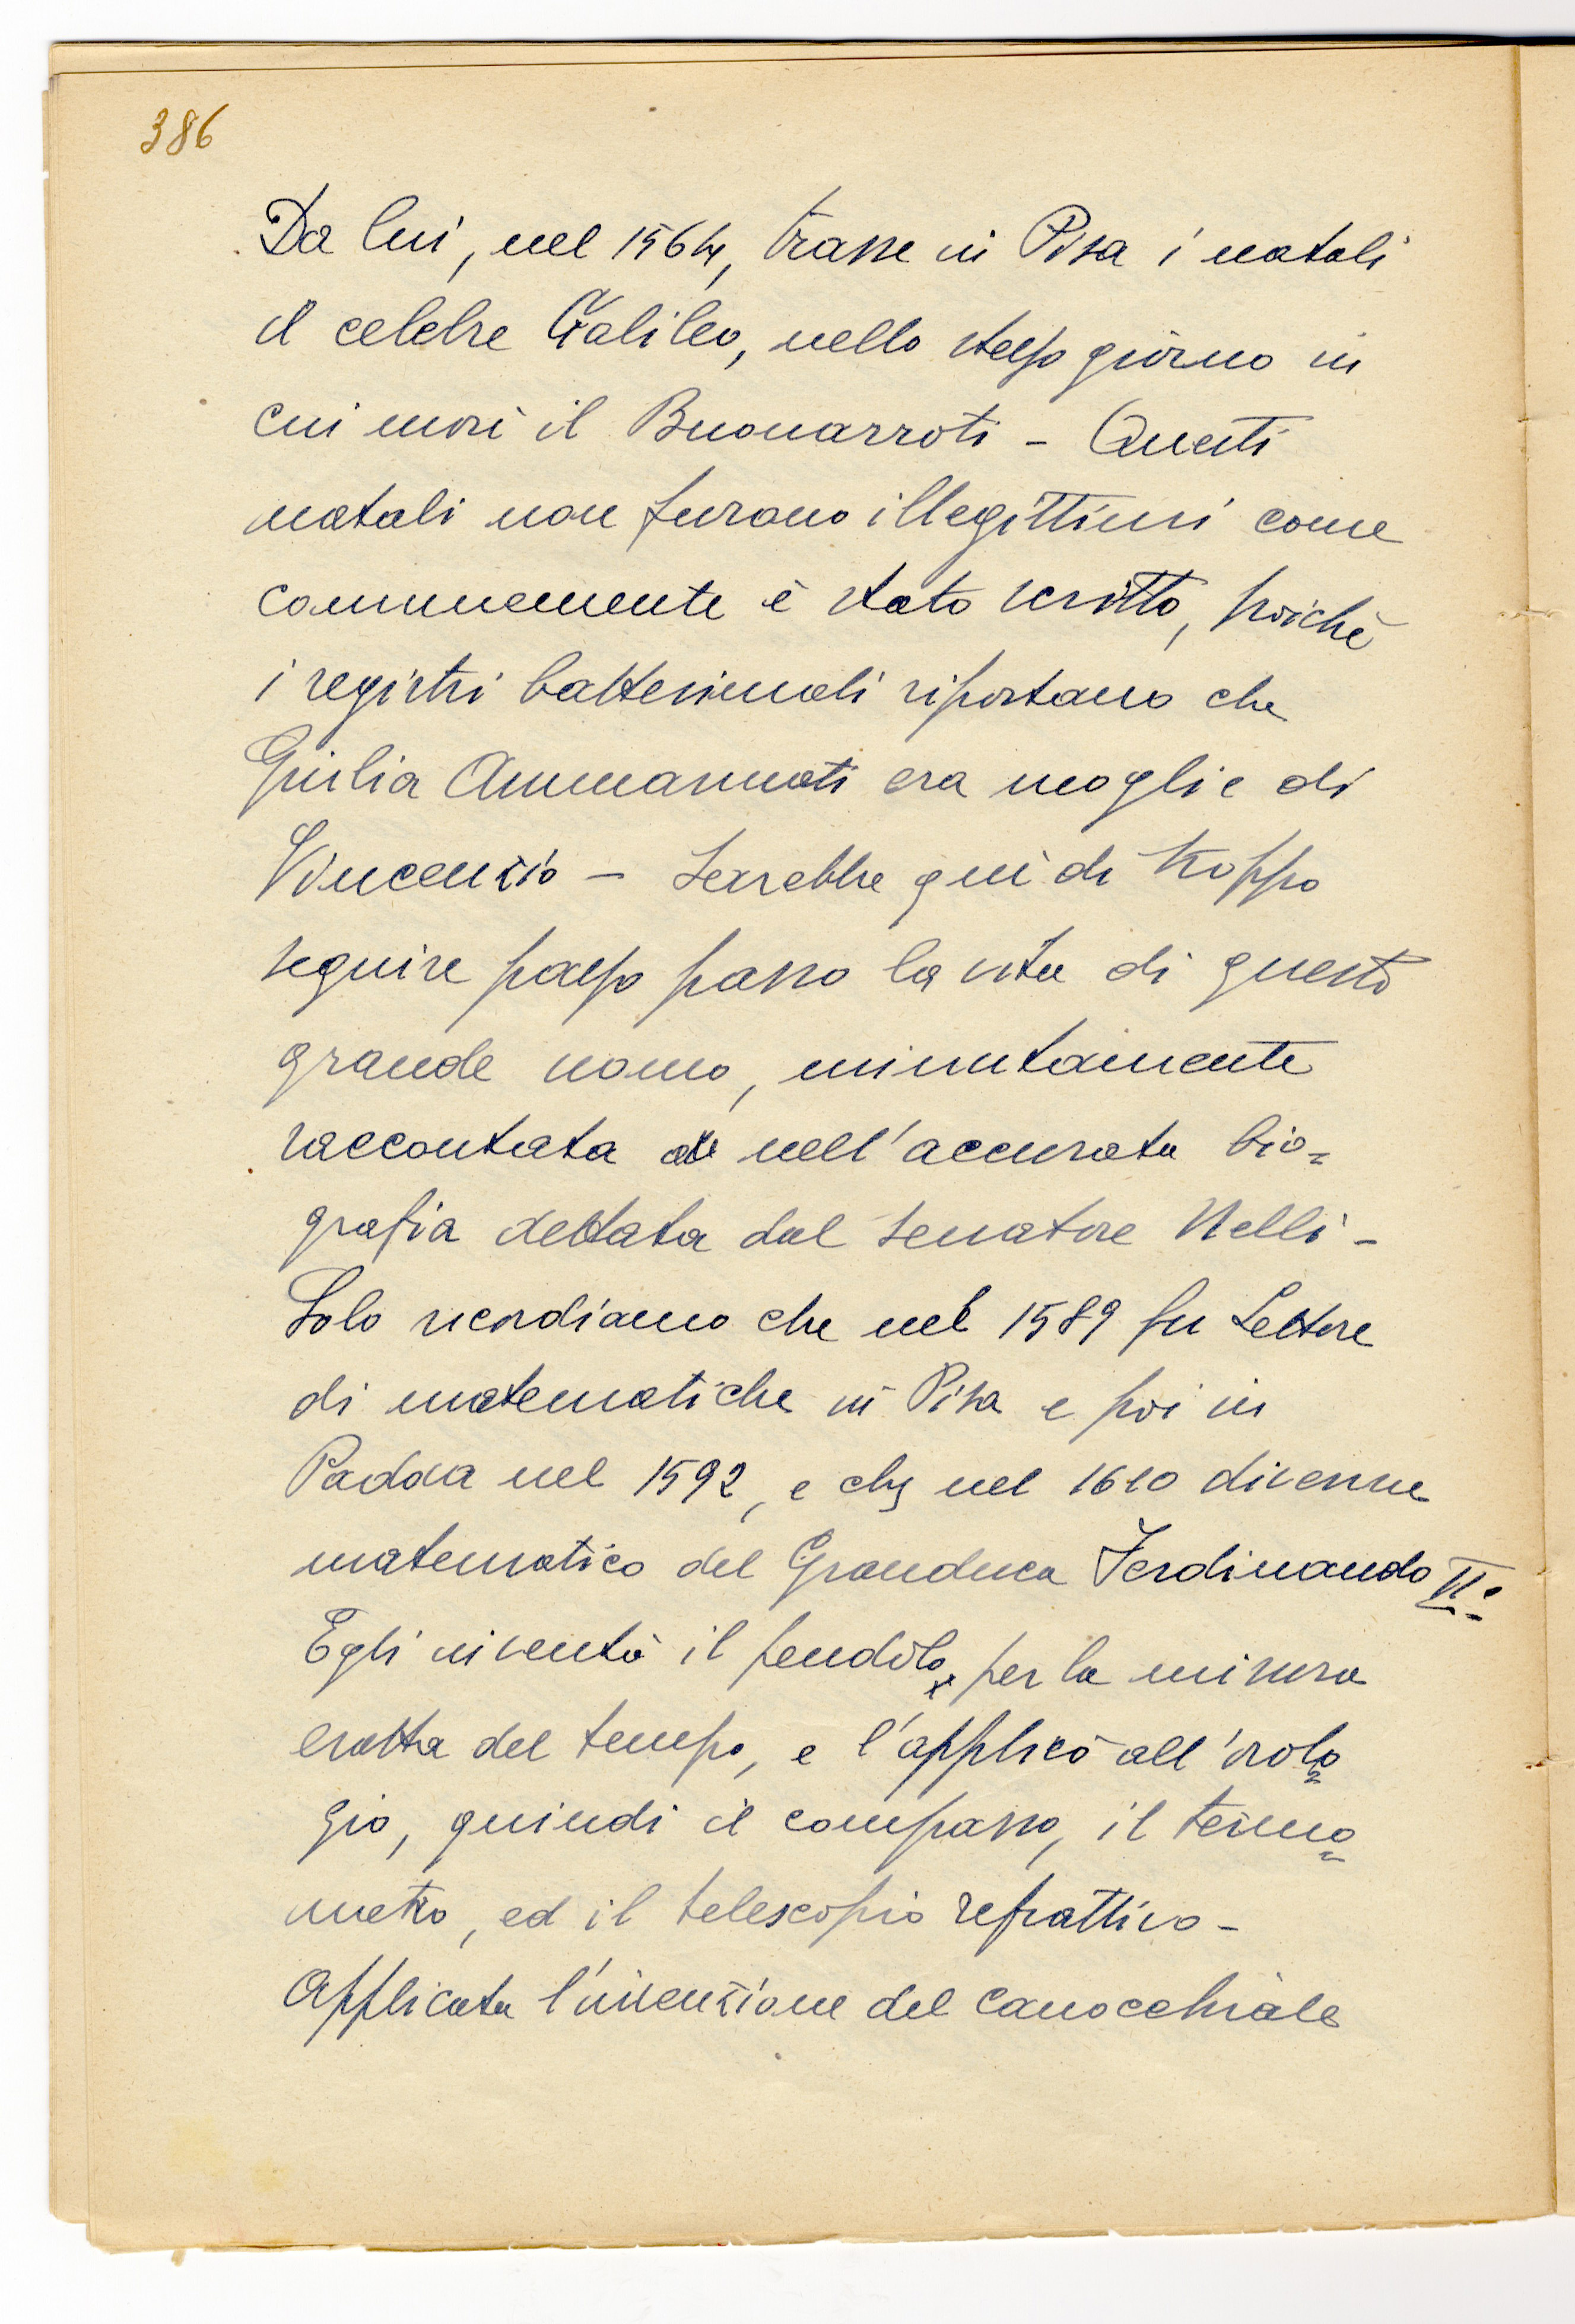 386
Da lui, nel 1564, trasse in Pisa i natali
il celebre Galileo, nello stesso giorno in
cui morì il Buonarroti - Questi
natali non furono illegittimi come
comunemente è stato scritto, poichè
i registri battesimali riportano che
Giulia Ammannati era moglie di
Vincenzio - Sarebbe quì di troppo
seguire passo passo la vita di questo
grande uomo, minutamente
raccontata nell'accurata bio=
grafia dettata dal Senatore Nelli -
Solo ricordiamo che nel 1589 fu Lettore
di matematiche in Pisa e poi in
Padova nel 1592, e che nel 1610 divenne
matematico del Granduca Ferdinando II°
Egli inventò il pendolo, per la misura
esatta del tempo, e l'applicò all'orolo=
gio, quindi il compasso, il termo=
metro, ed il telescopio refrattivo -
Applicata l'invenzione del canocchiale